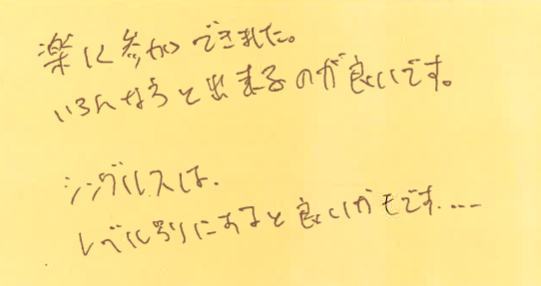 楽に参加できました。
いろんな方と出来るのが良いです。
シングルスは、
レベル別にすると良いかもです....